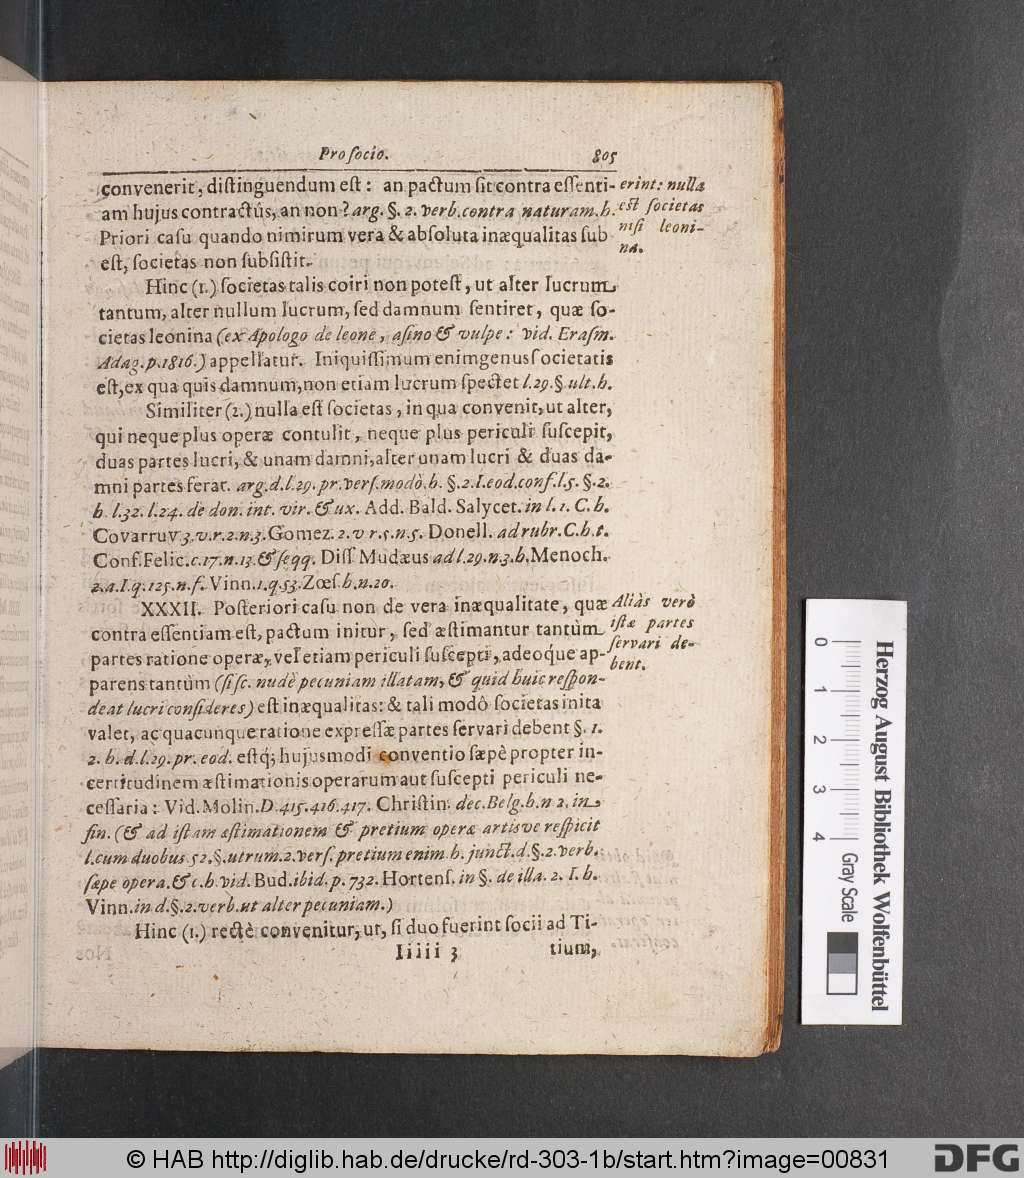 Pro socio. 805
convenerit, distinguendum est: an pactum sit contra essenti-
am hujus contractûs, an non? arg. §. 2. verb. contra naturam. h.
Priori casu quando nimirum vera & absoluta inæqualitas sub
est, societas non subsistit.
erint: nulla
est societas
nisi leoni-
na.
Hinc (1.) societas talis coiri non potest, ut alter lucrum
tantum, alter nullum lucrum, sed damnum sentiret, quæ so-
cietas leonina (ex Apologo de leone, asino & vulpe: vid. Erasm.
Adag. p. 1816.) appellatur. Iniquissimum enim genus societatis
est, ex qua quis damnum, non etiam lucrum spectet l. 29. § ult. h.
Similiter (2.) nulla est societas, in qua convenit, ut alter,
qui neque plus operæ contulit, neque plus periculi suscepit,
duas partes lucri, & unam damni, alter unam lucri & duas da-
mni partes ferat. arg. d. l. 29. pr. vers. modò. h. §. 2. I. eod. conf. l. 5. §. 2.
h. l. 32. l. 24. de don. int. vir. & ux. Add. Bald. Salycet. in l. 1. C. h.
Covarruv 3. v. r. 2. n. 3. Gomez. 2. v r. 5. n. 5. Donell. ad rubr. C. h. t.
Conf. Felic. c. 17. n. 13. & seqq. Diss Mudæus ad l. 29. n. 3. h. Menoch.
2. a. I. q. 125. n. f. Vinn. 1. q. 53. Zoes. h. n. 20.
XXXII. Posteriori casu non de vera inæqualitate, quæ
contra essentiam est, pactum initur, sed æstimantur tantùm
partes ratione operæ, vel etiam periculi suscepti, adeoque ap-
parens tantùm (si sc. nudè pecuniam illatam, & quid huic respon-
deat lucri consideres) est inæqualitas: & tali modô societas inita
valet, ac quacunque ratione expressæ partes servari debent §. 1.
2. h. d. l. 29. pr. eod. estq; hujusmodi conventio sæpè propter in-
certitudinem æstimationis operarum aut suscepti periculi ne-
cessaria: Vid. Molin. D. 415. 416. 417. Christin. dec. Belg. h. n 2. in
fin. (& ad istam æstimationem & pretium operæ artisve respicit
l. cum duobus 52. §. utrum. 2. vers. pretium enim. h. junct. d. §. 2. verb.
sæpe opera. & c. h. vid. Bud. ibid. p. 732. Hortens. in §. de illa. 2. I. h.
Vinn. in d. §. 2. verb. ut alter pecuniam.)
Aliàs verò
istæ partes
servari de-
bent.
Hinc (1.) rectè convenitur, ut, si duo fuerint socii ad Ti-
Iiiii 3 tium,
0 1 2 3 4
Gray Scale
Herzog August Bibliothek Wolfenbüttel
© HAB http://diglib.hab.de/drucke/rd-303-1b/start.htm?image=00831
DFG